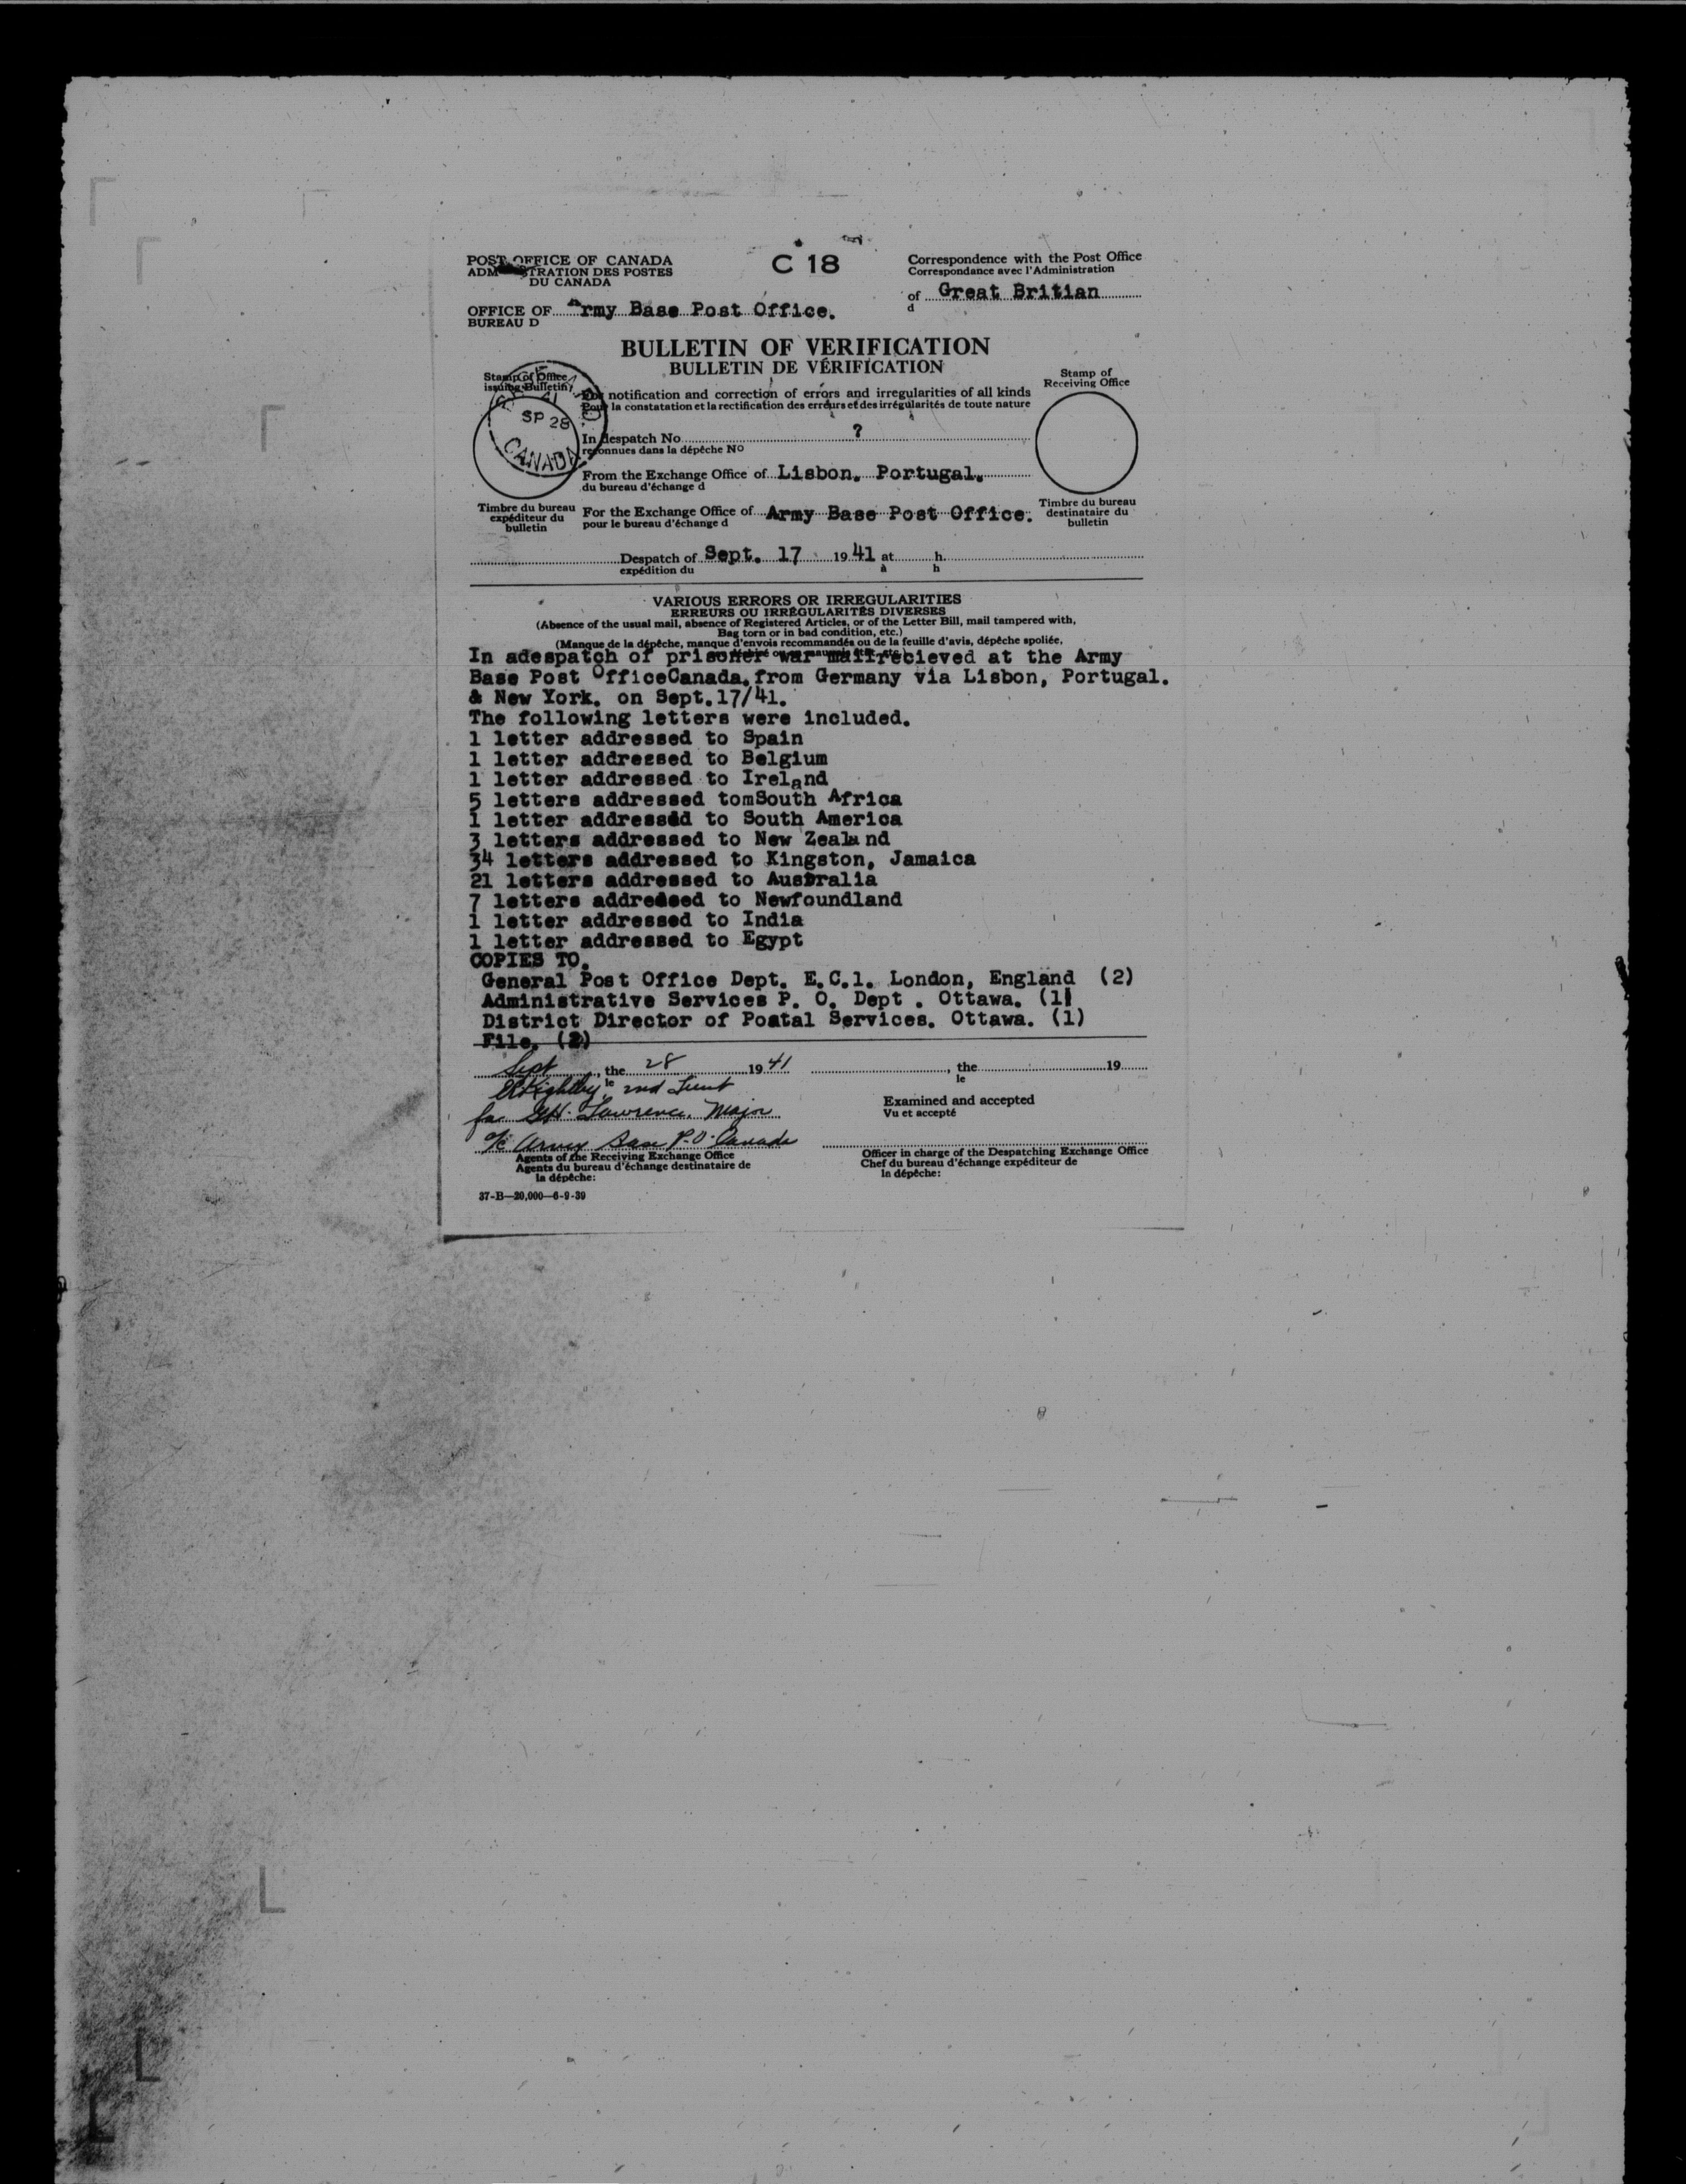 POST OFFICE OF CANADA
ADM STRATION DES POSTES
DU CANADA
C 18
Correspondence with the Post Office
Correspondance avec l'Administration
of Great Britian
d
OFFICE OF Army Base Post Office.
BUREAU D
BULLETIN OF VERIFICATION
BULLETIN DE VÉRIFICATION
Stamp of Office
issuing Bulletin
SP 28
41
CANADA
Stamp of
Receiving Office
For notification and correction of errors and irregularities of all kinds
Pour la constatation et la rectification des erreurs et des irrégularités de toute nature
In despatch No. ?
reconnues dans la dépêche No
From the Exchange Office of Lisbon, Portugal.
du bureau d'échange d
Timbre du bureau
expéditeur du
bulletin
For the Exchange Office of Army Base Post Office.
pour le bureau d'échange d
Timbre du bureau
destinataire du
bulletin
Despatch of Sept. 17 1941 at h.
expédition du à h
VARIOUS ERRORS OR IRREGULARITIES
ERREURS OU IRRÉGULARITÉS DIVERSES
(Absence of the usual mail, absence of Registered Articles, or of the Letter Bill, mail tampered with,
Bag torn or in bad condition, etc.)
(Manque de la dépêche, manque d'envois recommandés ou de la feuille d'avis, dépêche spoliée,
In adespatch of prisoner war mail recieved at the Army
Base Post OfficeCanada.from Germany via Lisbon, Portugal.
& New York. on Sept.17/41.
The following letters were included.
1 letter addressed to Spain
1 letter addressed to Belgium
1 letter addressed to Ireland
5 letters addressed tomSouth Africa
1 letter addressed to South America
3 letters addressed to New Zealand
34 letters addressed to Kingston, Jamaica
21 letters addressed to Australia
7 letters addressed to Newfoundland
1 letter addressed to India
1 letter addressed to Egypt
COPIES TO.
General Post Office Dept. E.C.1. London, England (2)
Administrative Services P. O. Dept . Ottawa. (1)
District Director of Postal Services. Ottawa. (1)
File. (2)
Sept, the 28 1941
le
, the 19
le
2nd Lieut
for G.H. Lawrence, Major
o/c Army Base P.O. Canada
Examined and accepted
Vu et accepté
Agents of the Receiving Exchange Office
Agents du bureau d'échange destinataire de
la dépêche:
Officer in charge of the Despatching Exchange Office
Chef du bureau d'échange expéditeur de
la dépêche:
37-B—20,000—6-9-39